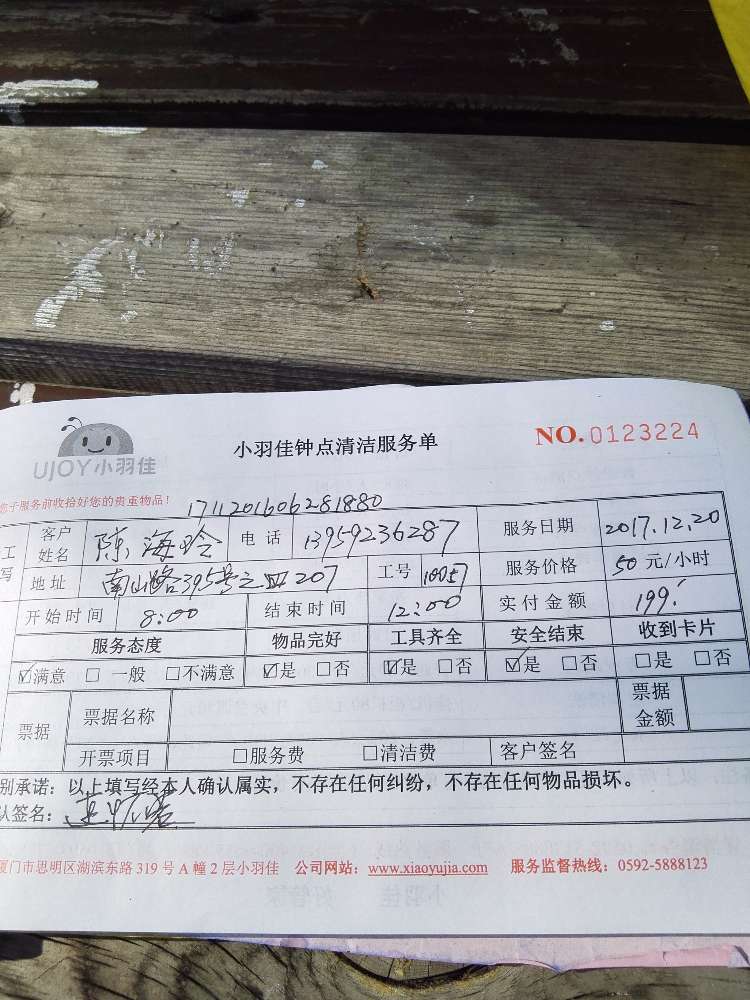 UJOY小羽佳
小羽佳钟点清洁服务单
NO.0123224
您于服务前收拾好您的贵重物品！
1711201606281880
工
写
客户
姓名
陈海晗
电话
13959236287
服务日期
2017.12.20
地址
南山路395号之四207
工号
10057
服务价格
50元/小时
开始时间
8:00
结束时间
12:00
实付金额
199.
服务态度 物品完好 工具齐全 安全结束 收到卡片
☑满意 □一般 □不满意 ☑是 □否 ☑是 □否 ☑是 □否 □是 □否
票据
票据名称
票据
金额
开票项目 □服务费 □清洁费 客户签名
别承诺：以上填写经本人确认属实，不存在任何纠纷，不存在任何物品损坏。
认签名：
厦门市思明区湖滨东路319号A幢2层小羽佳 公司网站：www.xiaoyujia.com 服务监督热线：0592-5888123